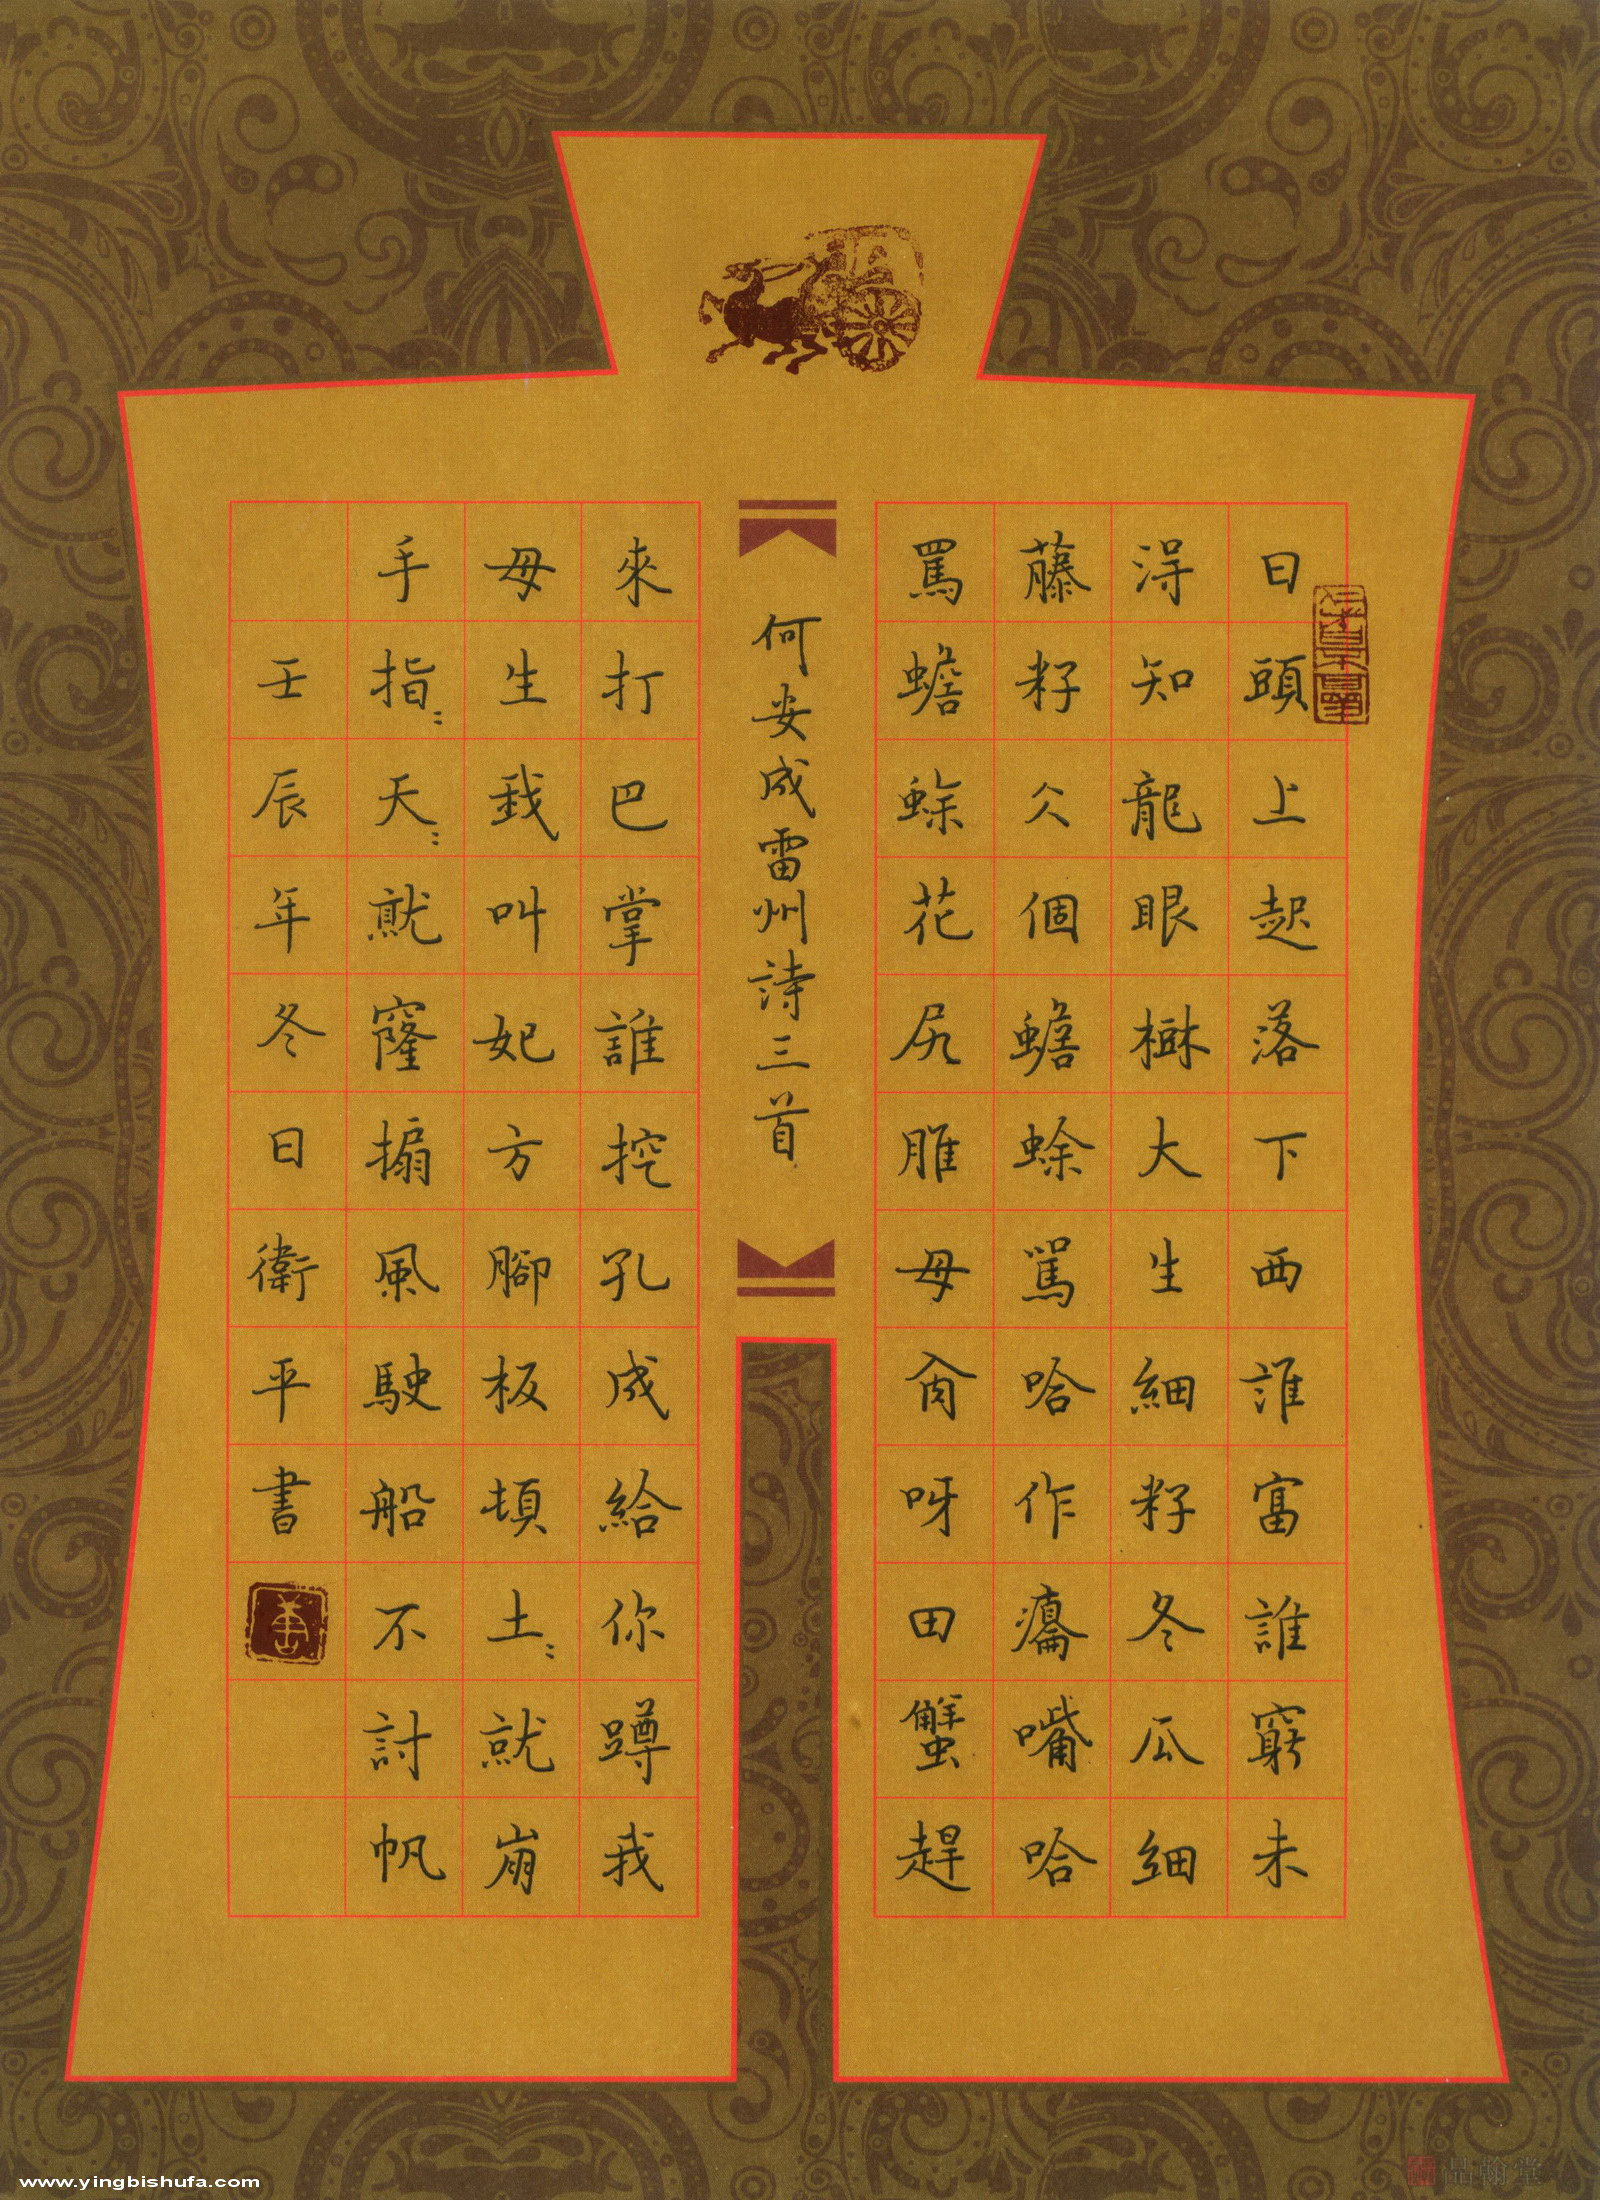 日頭上起落下西誰富誰窮未
淂知龍眼樹大生細籽冬瓜細
藤籽欠個蟾蜍駡哈作癟嘴哈
駡蟾蜍花尻脽毋肏呀田蟹趕
何安成雷州詩三首
來打巴掌誰挖孔成給你蹲我
母生我叫妃方腳板頓土〻就崩
手指〻天〻就窿搧風駛船不討帆
壬辰年冬日衛平書
www.yingbishufa.com
品翰堂